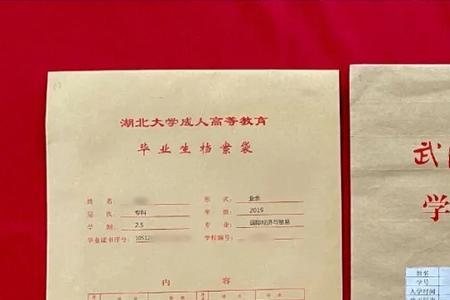 湖北大学成人高等教育
毕业生档案袋
姓 名: 形 式: 业余
层 次: 专科 年 级: 2019
学 制: 2.5 专 业: 国际经济与贸易
毕业证书序号: 10512 学校编号:
内 容
武
学
姓名
学号
入学时间